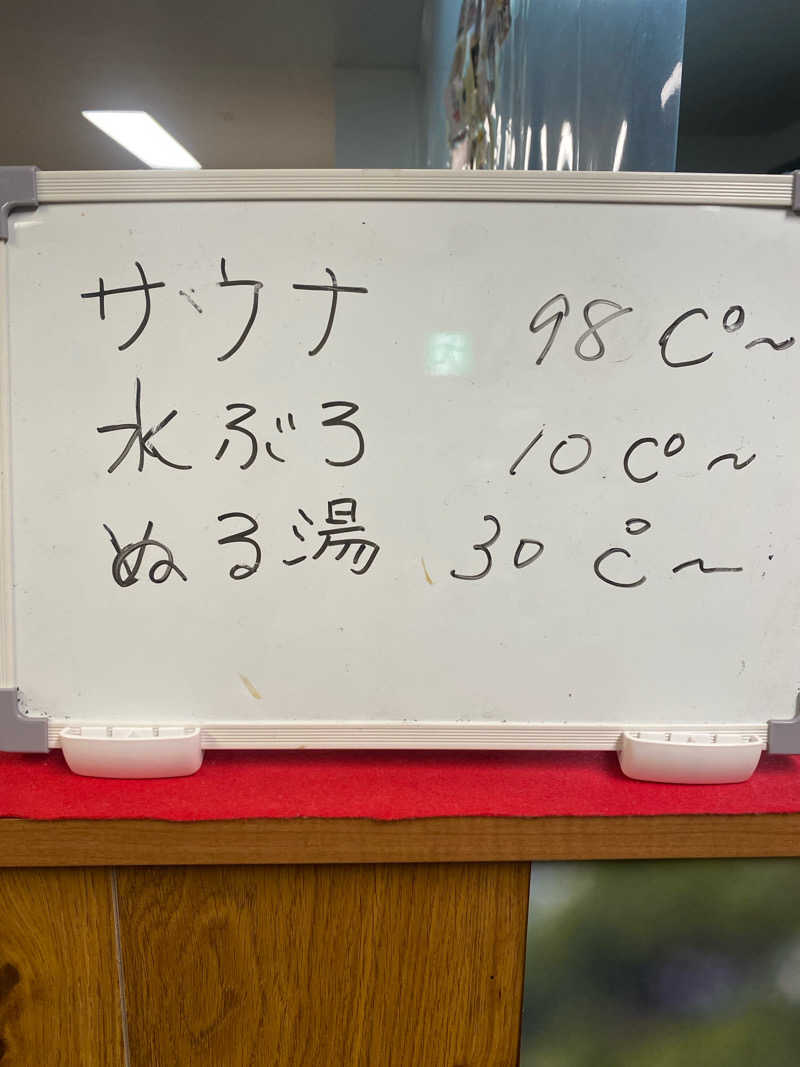 サウナ 98 C°~
水ぶろ 10 C°~
ぬる湯 30 C°~